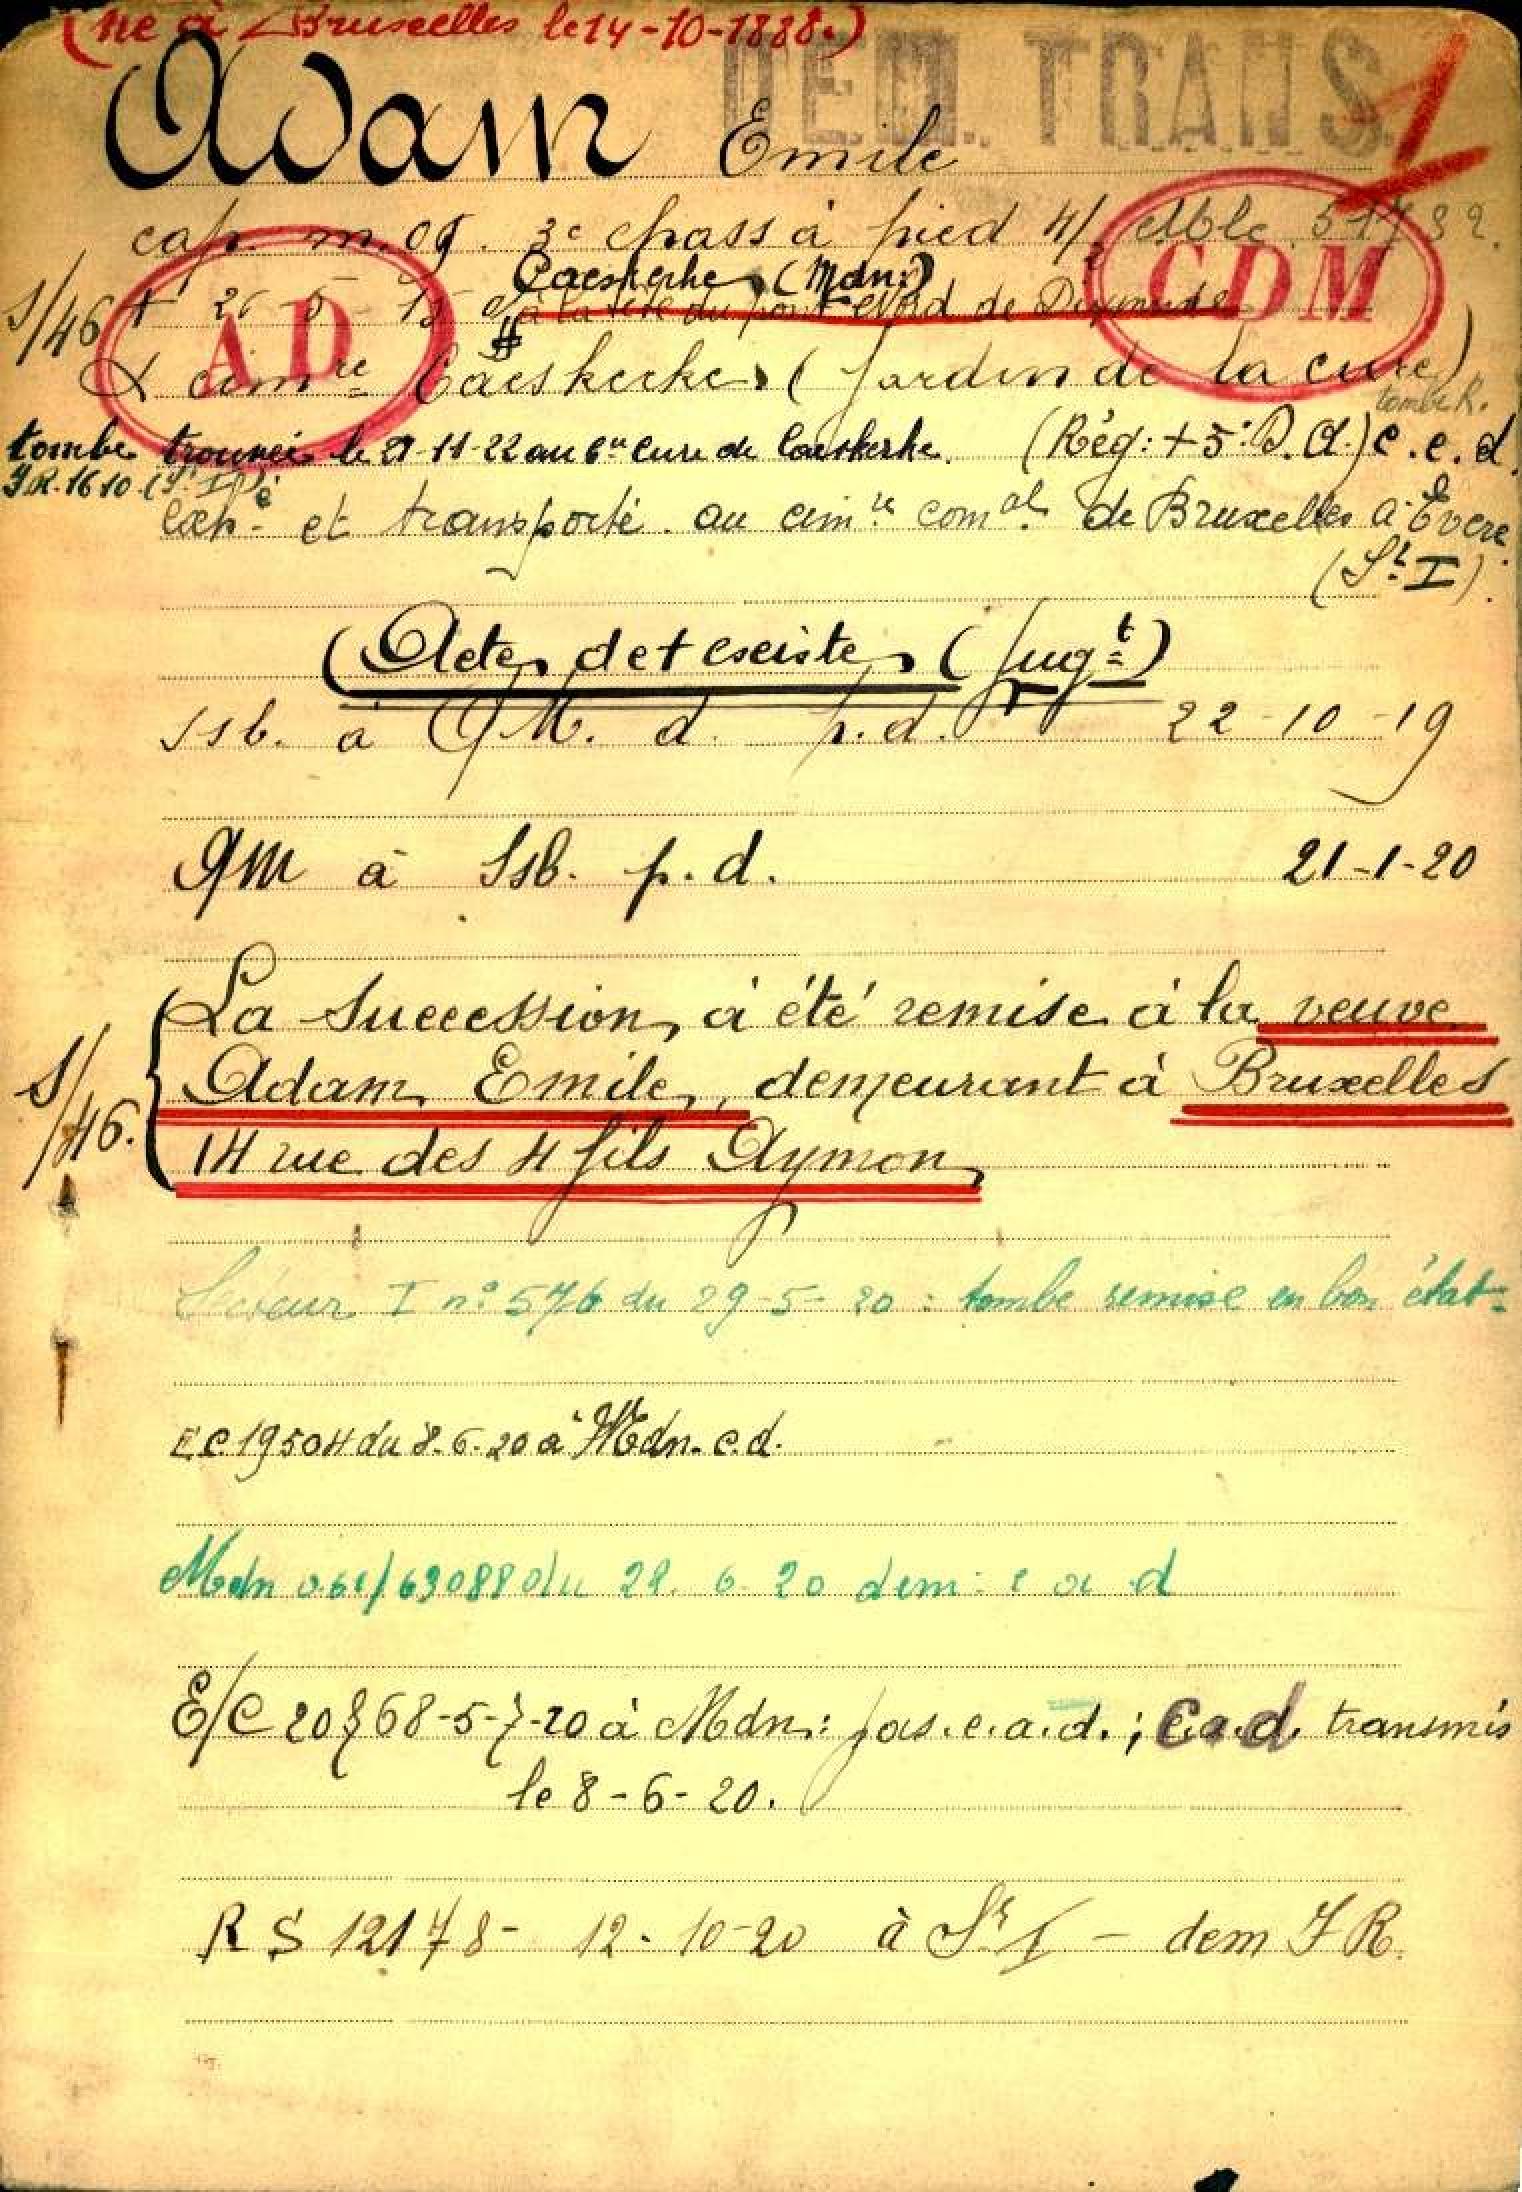 (né à Bruxelles le 14-10-1888.)
DEM. TRANS. 1
Adam Emile
cap. m. og. 3e chass à pied 4/2 Mble 51732.
Caeskerke (Mdn:)
S/46 + 26-5-15 à la tête du pont Nord de Dixmude
AD CDM
& cimre Caeskerke (Jardin de la cure)
tombe R.
tombe trouvée le 21-11-22 au Cre Cure de Caeskerke. (Rég: + 5e D.A.) c.e.d.
J.R. 1610 (Sr I)
Exhé et transporté au cimre comal de Bruxelles à Evere
(St I).
(Acte de + existe (Jugt)
Ssb. à QM. d. p.d. 22-10-19
QM à Ssb. p.d. 21-1-20
La succession à été remise à la veuve
S/46. Adam Emile, demeurant à Bruxelles
14 rue des 4 fils Aymon
Secteur I n° 576 du 29-5-20 : tombe remise en bon état-
EC 19504 du 8.6.20 à Mdn. c.d.
Mdn 061/690880 du 28. 6 20 dem: e a d
E/C 20768-5-7-20 à Mdn: pas.e.a.d.; e.a.d. transmis
le 8-6-20.
RS 12178- 12-10-20 à Sr I - dem J R.